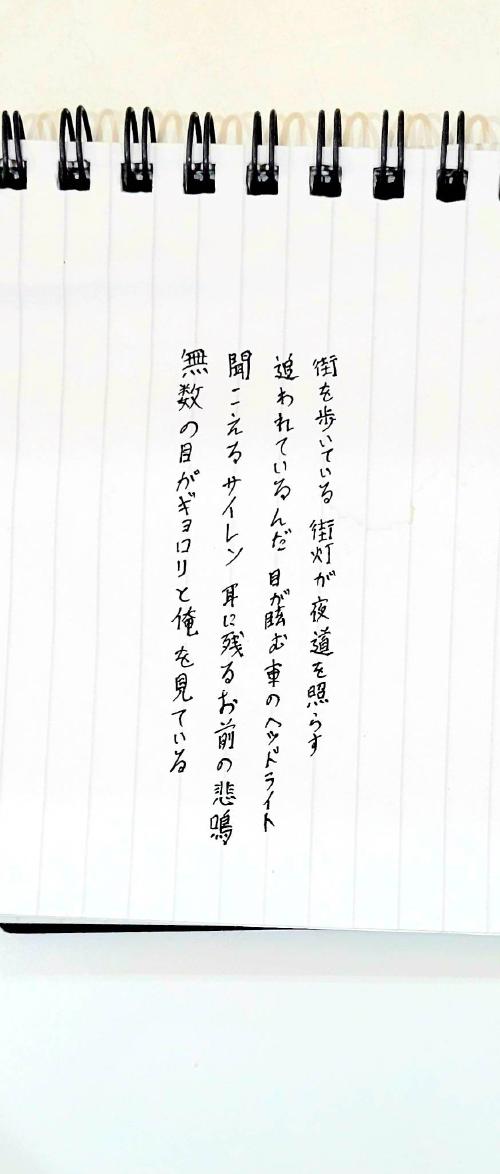 街を歩いている 街灯が夜道を照らす
追われているんだ 目が眩む車のヘッドライト
聞こえるサイレン 耳に残るお前の悲鳴
無数の目がギョロリと俺を見ている